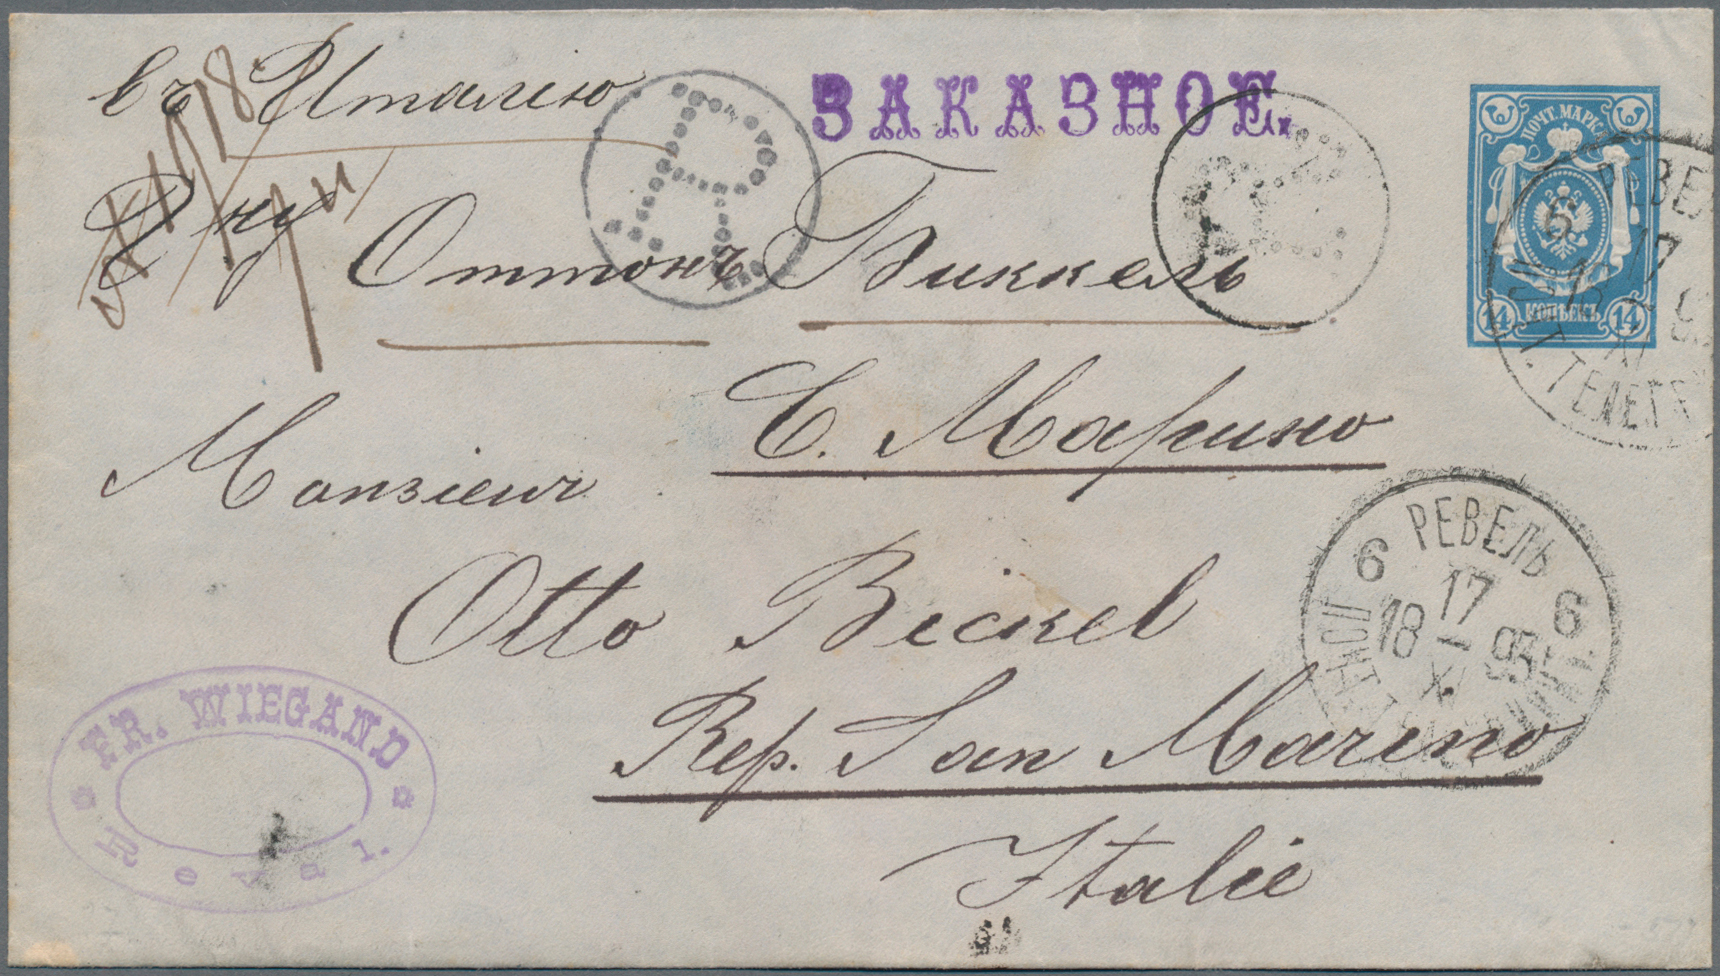 въ Италію
ЗАКАЗНОЕ.
R
ПОЧТ. МАРКА
14 КОПѢЕКЪ 14
Гну Оттонъ Биккель
С. Марино
Monsieur
Otto Bickel
Rep. San Marino
Italie
РЕВЕЛЬ
6 17 6
18 — 95
XI
РЕВЕЛ
6 17
18
XI
Т. ТЕЛЕГР
FR. WIEGAND
Reval.